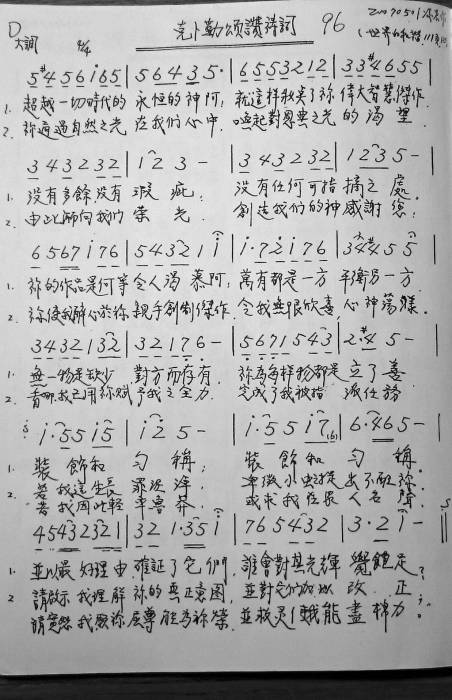 D 大調 2/4 克卜勒頌讚詩詞 96
5 #4 5 6 i 6 5 | 5 6 4 3 5· | 6 5 5 3 2 1 2 | 3 3 #4 6 5 5 |
1. 超越一切時代的 永恒的神阿, 就這樣 祢 偉大智慧傑作.
2. 祢 過自然之光 在我們心中. 喚起對恩典之光 的渴望.
3 4 3 2 3 2 | 1 2 3 - | 3 4 3 2 3 2 | 1 2 3 5 - |
1. 沒有多餘沒有 瑕疵; 沒有任何可指摘之處.
2. 由此 向我們 榮光. 創造我們的神感謝您;
6 5 6 7 i 7 6 | 5 4 3 2 1 i | i· 7 2 i 7 6 | 3 #4 #4 5 5 |
1. 祢的作品是何等令人渴慕阿; 萬有都是一方 平衡另一方.
2. 祢使我醉心於祢親手創制傑作. 令我無限欣喜, 心神蕩漾.
3 4 3 2 1 3 2 | 3 2 1 7 6 - | 5 6 7 1 5 4 3 | 2· #4 5 - |
1. 無一物是缺少 對方而存有. 祢為各樣物都是立了善
2. 看哪,我已用祢賦予我之全力. 完成了我被指 派任務
i· 5 5 i 5 | i 2 5 - | i· 5 5 i 7 | 6· #4 6 5 - |
1. 裝飾和 勻稱; 裝飾和 勻稱.
2. 若我這生長 罪 ; 卑微小蟲 出不 祢.
若我因此輕率魯莽. 或求我在眾人名聲.
4 5 4 3 2 3 2 1 | 3 2 1· 3 5 i | 7 6 5 4 3 2 | 3· 2 i - ||
1. 並以最好理由 確証了它們. 誰會對其光輝 覺飽足?
2. 請啟示我理解 祢的真正意圖. 並對它們加以 改正;
請寬恕我. 祢 尊能為祢榮. 並 靈俄能盡棉力.